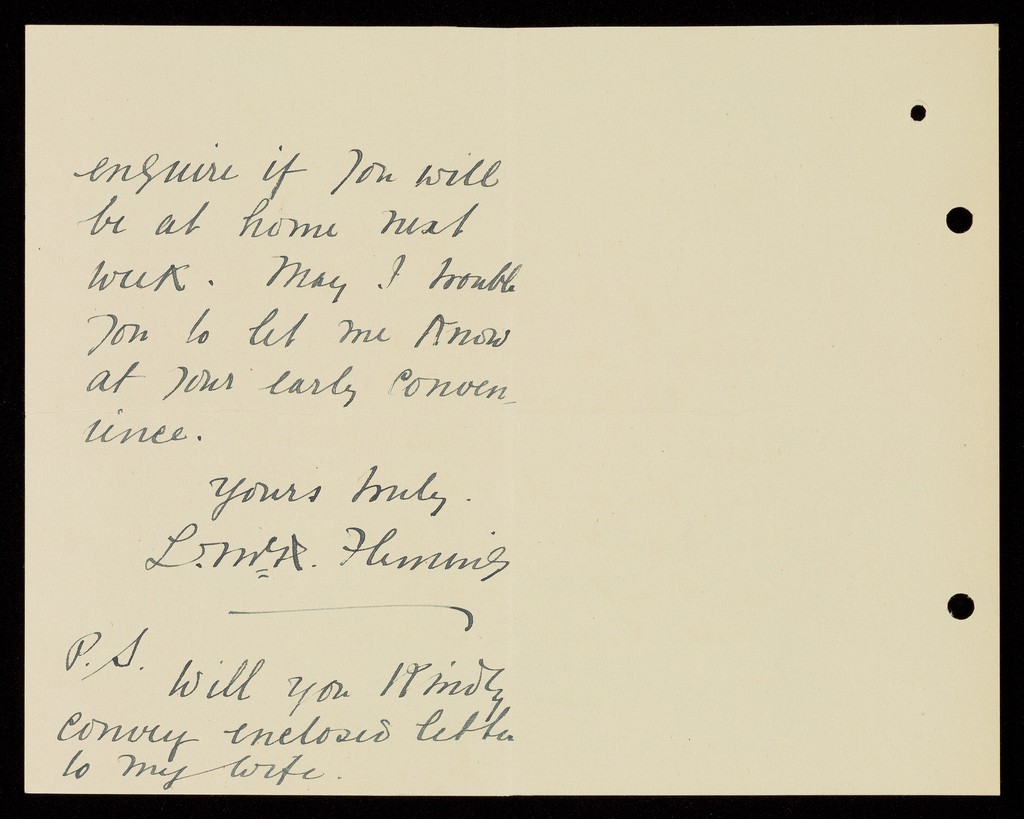 enquire if you will
be at home next
week. May I trouble
you to let me know
at your early conven-
ience.
Yours truly.
L. McK. Fleming
P.S.
Will you kindly
convey enclosed letter
to my wife.